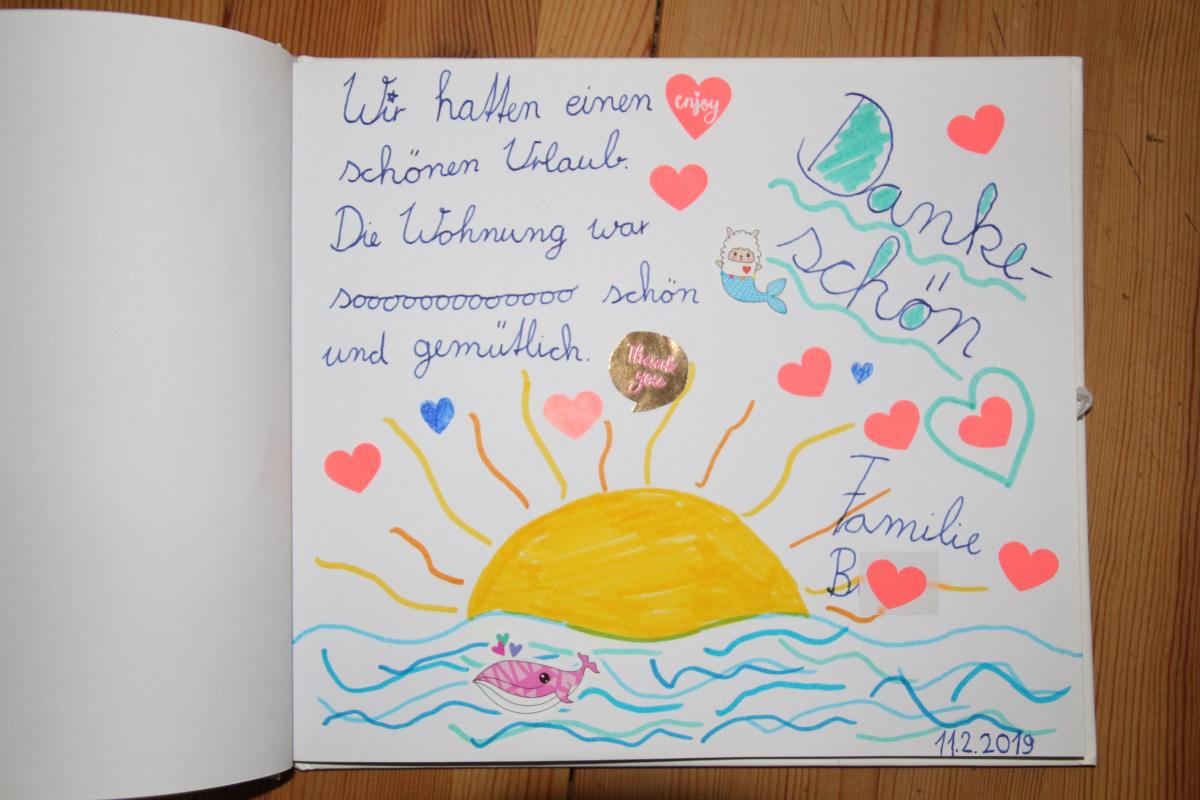 Wir hatten einen
enjoy
schönen Urlaub.
Die Wohnung war
sooooooooooooo schön
und gemütlich.
Thank
you
Danke-
schön
Familie
B
11.2.2019